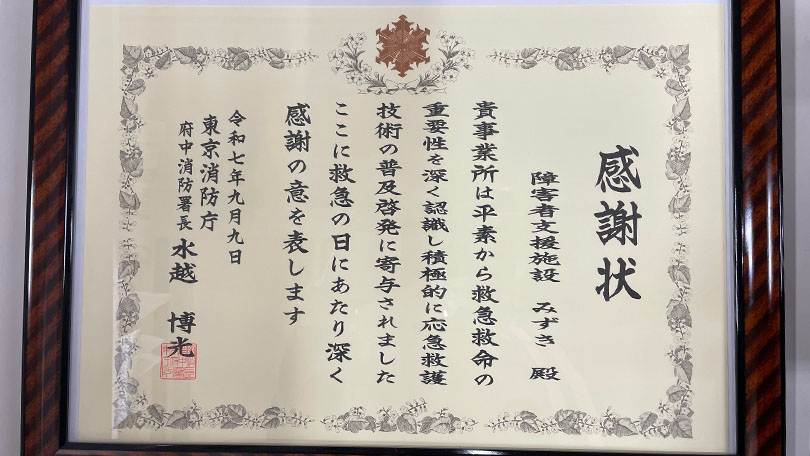 感謝状
障害者支援施設 みずき 殿
貴事業所は平素から救急救命の
重要性を深く認識し積極的に応急救護
技術の普及啓発に寄与されました
ここに救急の日にあたり深く
感謝の意を表します
令和七年九月九日
東京消防庁
府中消防署長 水越 博光